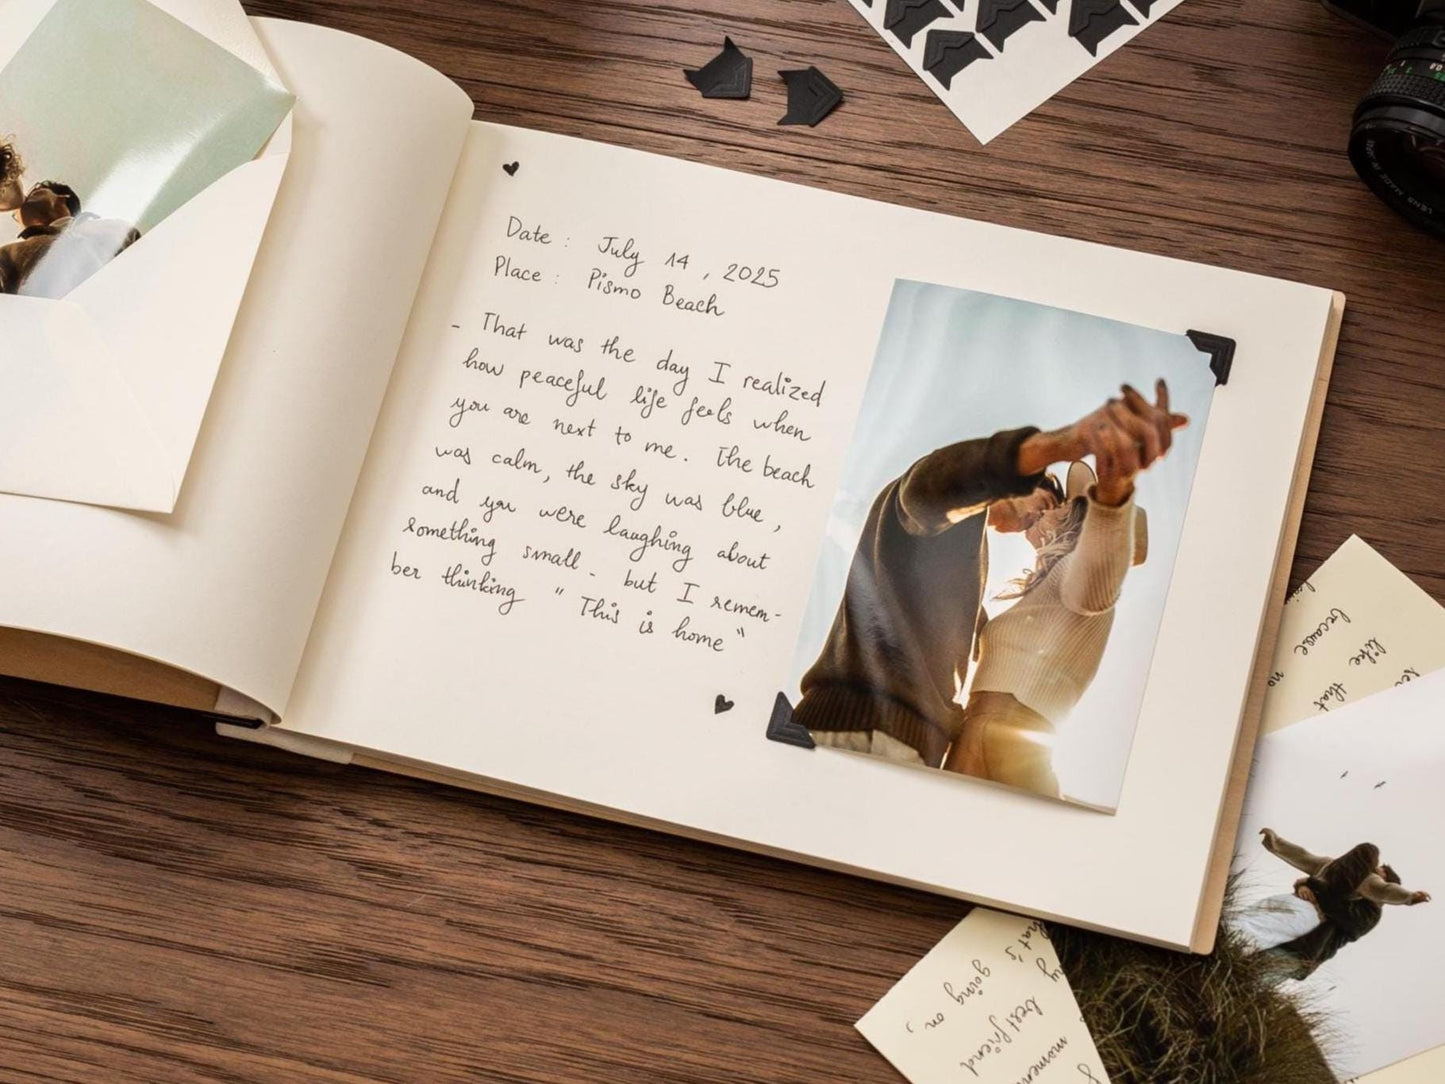 Date : July 14, 2025
Place : Pismo Beach
- That was the day I realized
how peaceful life feels when
you are next to me. The beach
was calm, the sky was blue,
and you were laughing about
something small - but I remem-
ber thinking " This is home "
because
like that
no
that's
going on,
my
best friend
LENS MADE IN